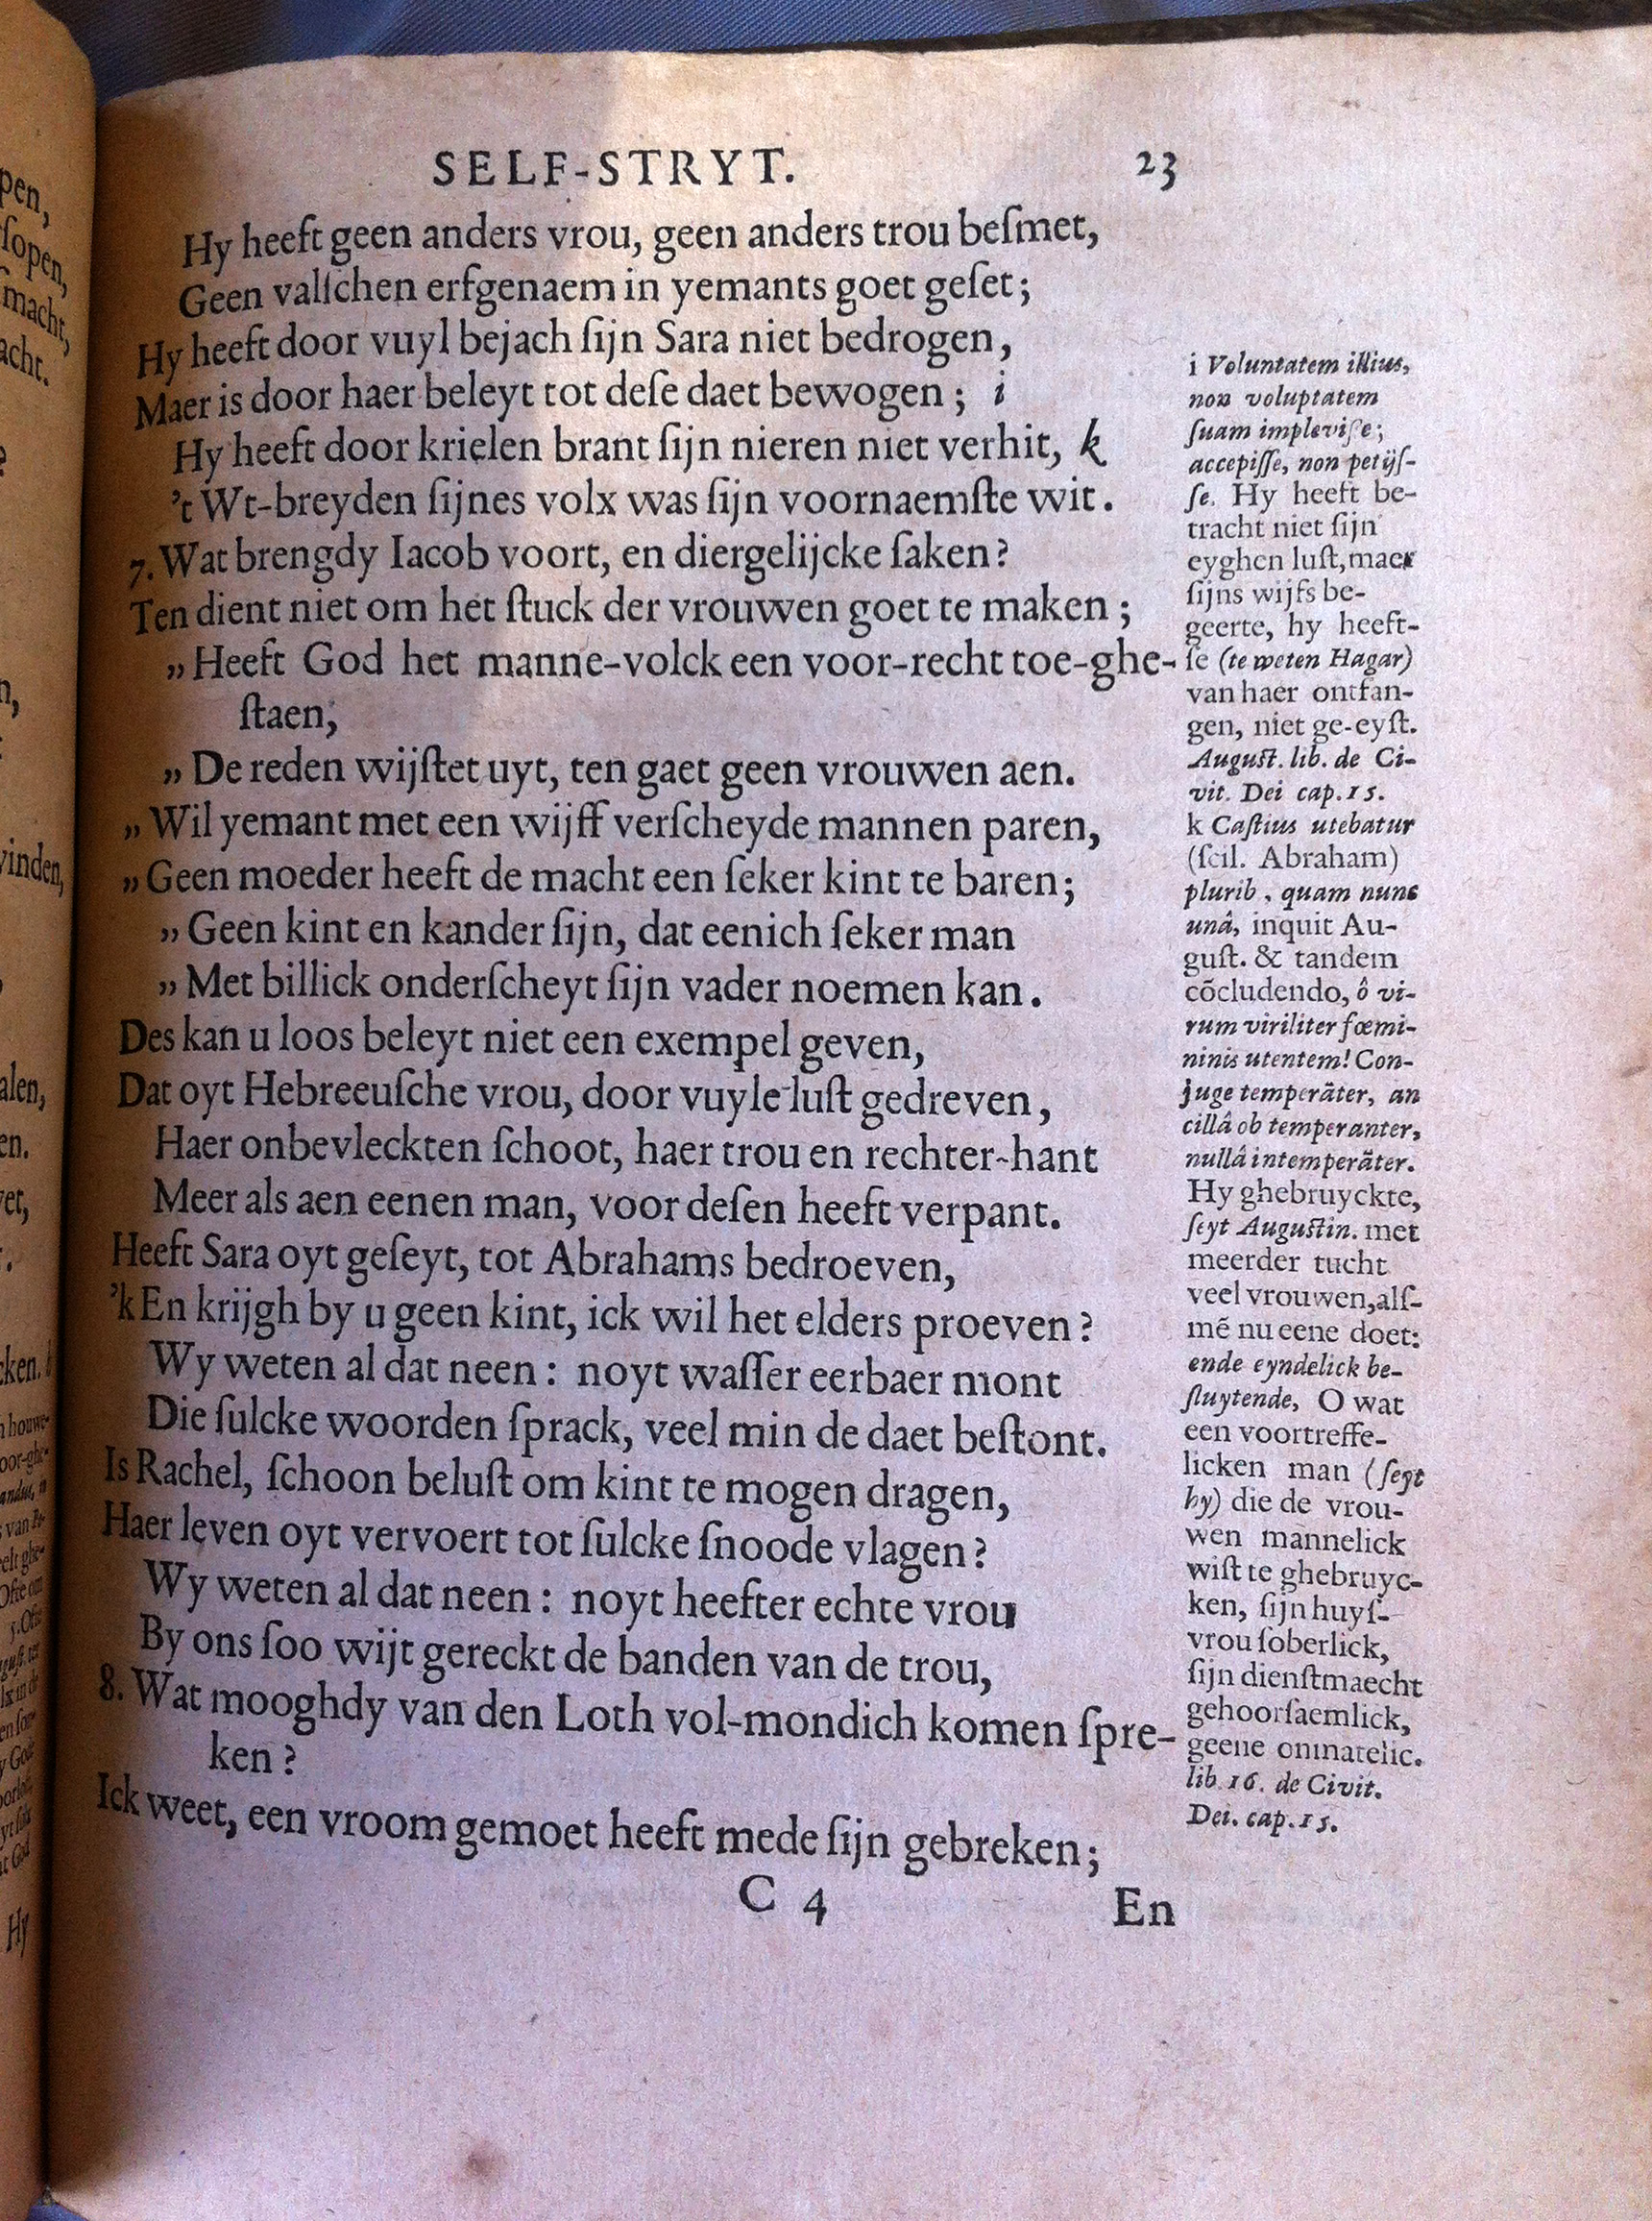 SELF-STRYT.
23
Hy heeft geen anders vrou, geen anders trou beſmet,
Geen valſchen erfgenaem in yemants goet geſet;
Hy heeft door vuyl bejach ſijn Sara niet bedrogen,
Maer is door haer beleyt tot deſe daet bewogen; i
Hy heeft door krielen brant ſijn nieren niet verhit, k
't Wt-breyden ſijnes volx was ſijn voornaemſte wit.
7. Wat brengdy Iacob voort, en diergelijcke ſaken?
Ten dient niet om het ſtuck der vrouwen goet te maken;
„ Heeft God het manne-volck een voor-recht toe-ghe-
ſtaen,
„ De reden wijſtet uyt, ten gaet geen vrouwen aen.
„ Wil yemant met een wijff verſcheyde mannen paren,
„ Geen moeder heeft de macht een ſeker kint te baren;
„ Geen kint en kander ſijn, dat eenich ſeker man
„ Met billick onderſcheyt ſijn vader noemen kan.
Des kan u loos beleyt niet een exempel geven,
Dat oyt Hebreeuſche vrou, door vuyle luſt gedreven,
Haer onbevleckten ſchoot, haer trou en rechter-hant
Meer als aen eenen man, voor deſen heeft verpant.
Heeft Sara oyt geſeyt, tot Abrahams bedroeven,
'k En krijgh by u geen kint, ick wil het elders proeven?
Wy weten al dat neen: noyt waſſer eerbaer mont
Die ſulcke woorden ſprack, veel min de daet beſtont.
Is Rachel, ſchoon beluſt om kint te mogen dragen,
Haer leven oyt vervoert tot ſulcke ſnoode vlagen?
Wy weten al dat neen: noyt heefter echte vrou
By ons ſoo wijt gereckt de banden van de trou,
8. Wat mooghdy van den Loth vol-mondich komen ſpre-
ken?
Ick weet, een vroom gemoet heeft mede ſijn gebreken;
C 4
En
i Voluntatem illius,
non voluptatem
ſuam impleviſſe;
accepiſſe, non petijſ-
ſe. Hy heeft be-
tracht niet ſijn
eyghen luſt, maer
ſijns wijfs be-
geerte, hy heeft-
ſe (te weten Hagar)
van haer ontfan-
gen, niet ge-eyſt.
Auguſt. lib. de Ci-
vit. Dei cap. 15.
k Caſtius utebatur
(ſcil. Abraham)
plurib. quam nunc
unâ, inquit Au-
guſt. & tandem
cõcludendo, ô vi-
rum viriliter fœmi-
ninis utentem! Con-
juge temperãter, an
cillâ ob temperanter,
nullâ intemperãter.
Hy ghebruyckte,
ſeyt Auguſtin. met
meerder tucht
veel vrouwen, alſ-
mẽ nu eene doet:
ende eyndelick be-
ſluytende, O wat
een voortreffe-
licken man (ſeyt
hy) die de vrou-
wen mannelick
wiſt te ghebruyc-
ken, ſijn huyſ-
vrou ſoberlick,
ſijn dienſtmaecht
gehoorſaemlick,
geene onmatelic.
lib. 16. de Civit.
Dei. cap. 15.